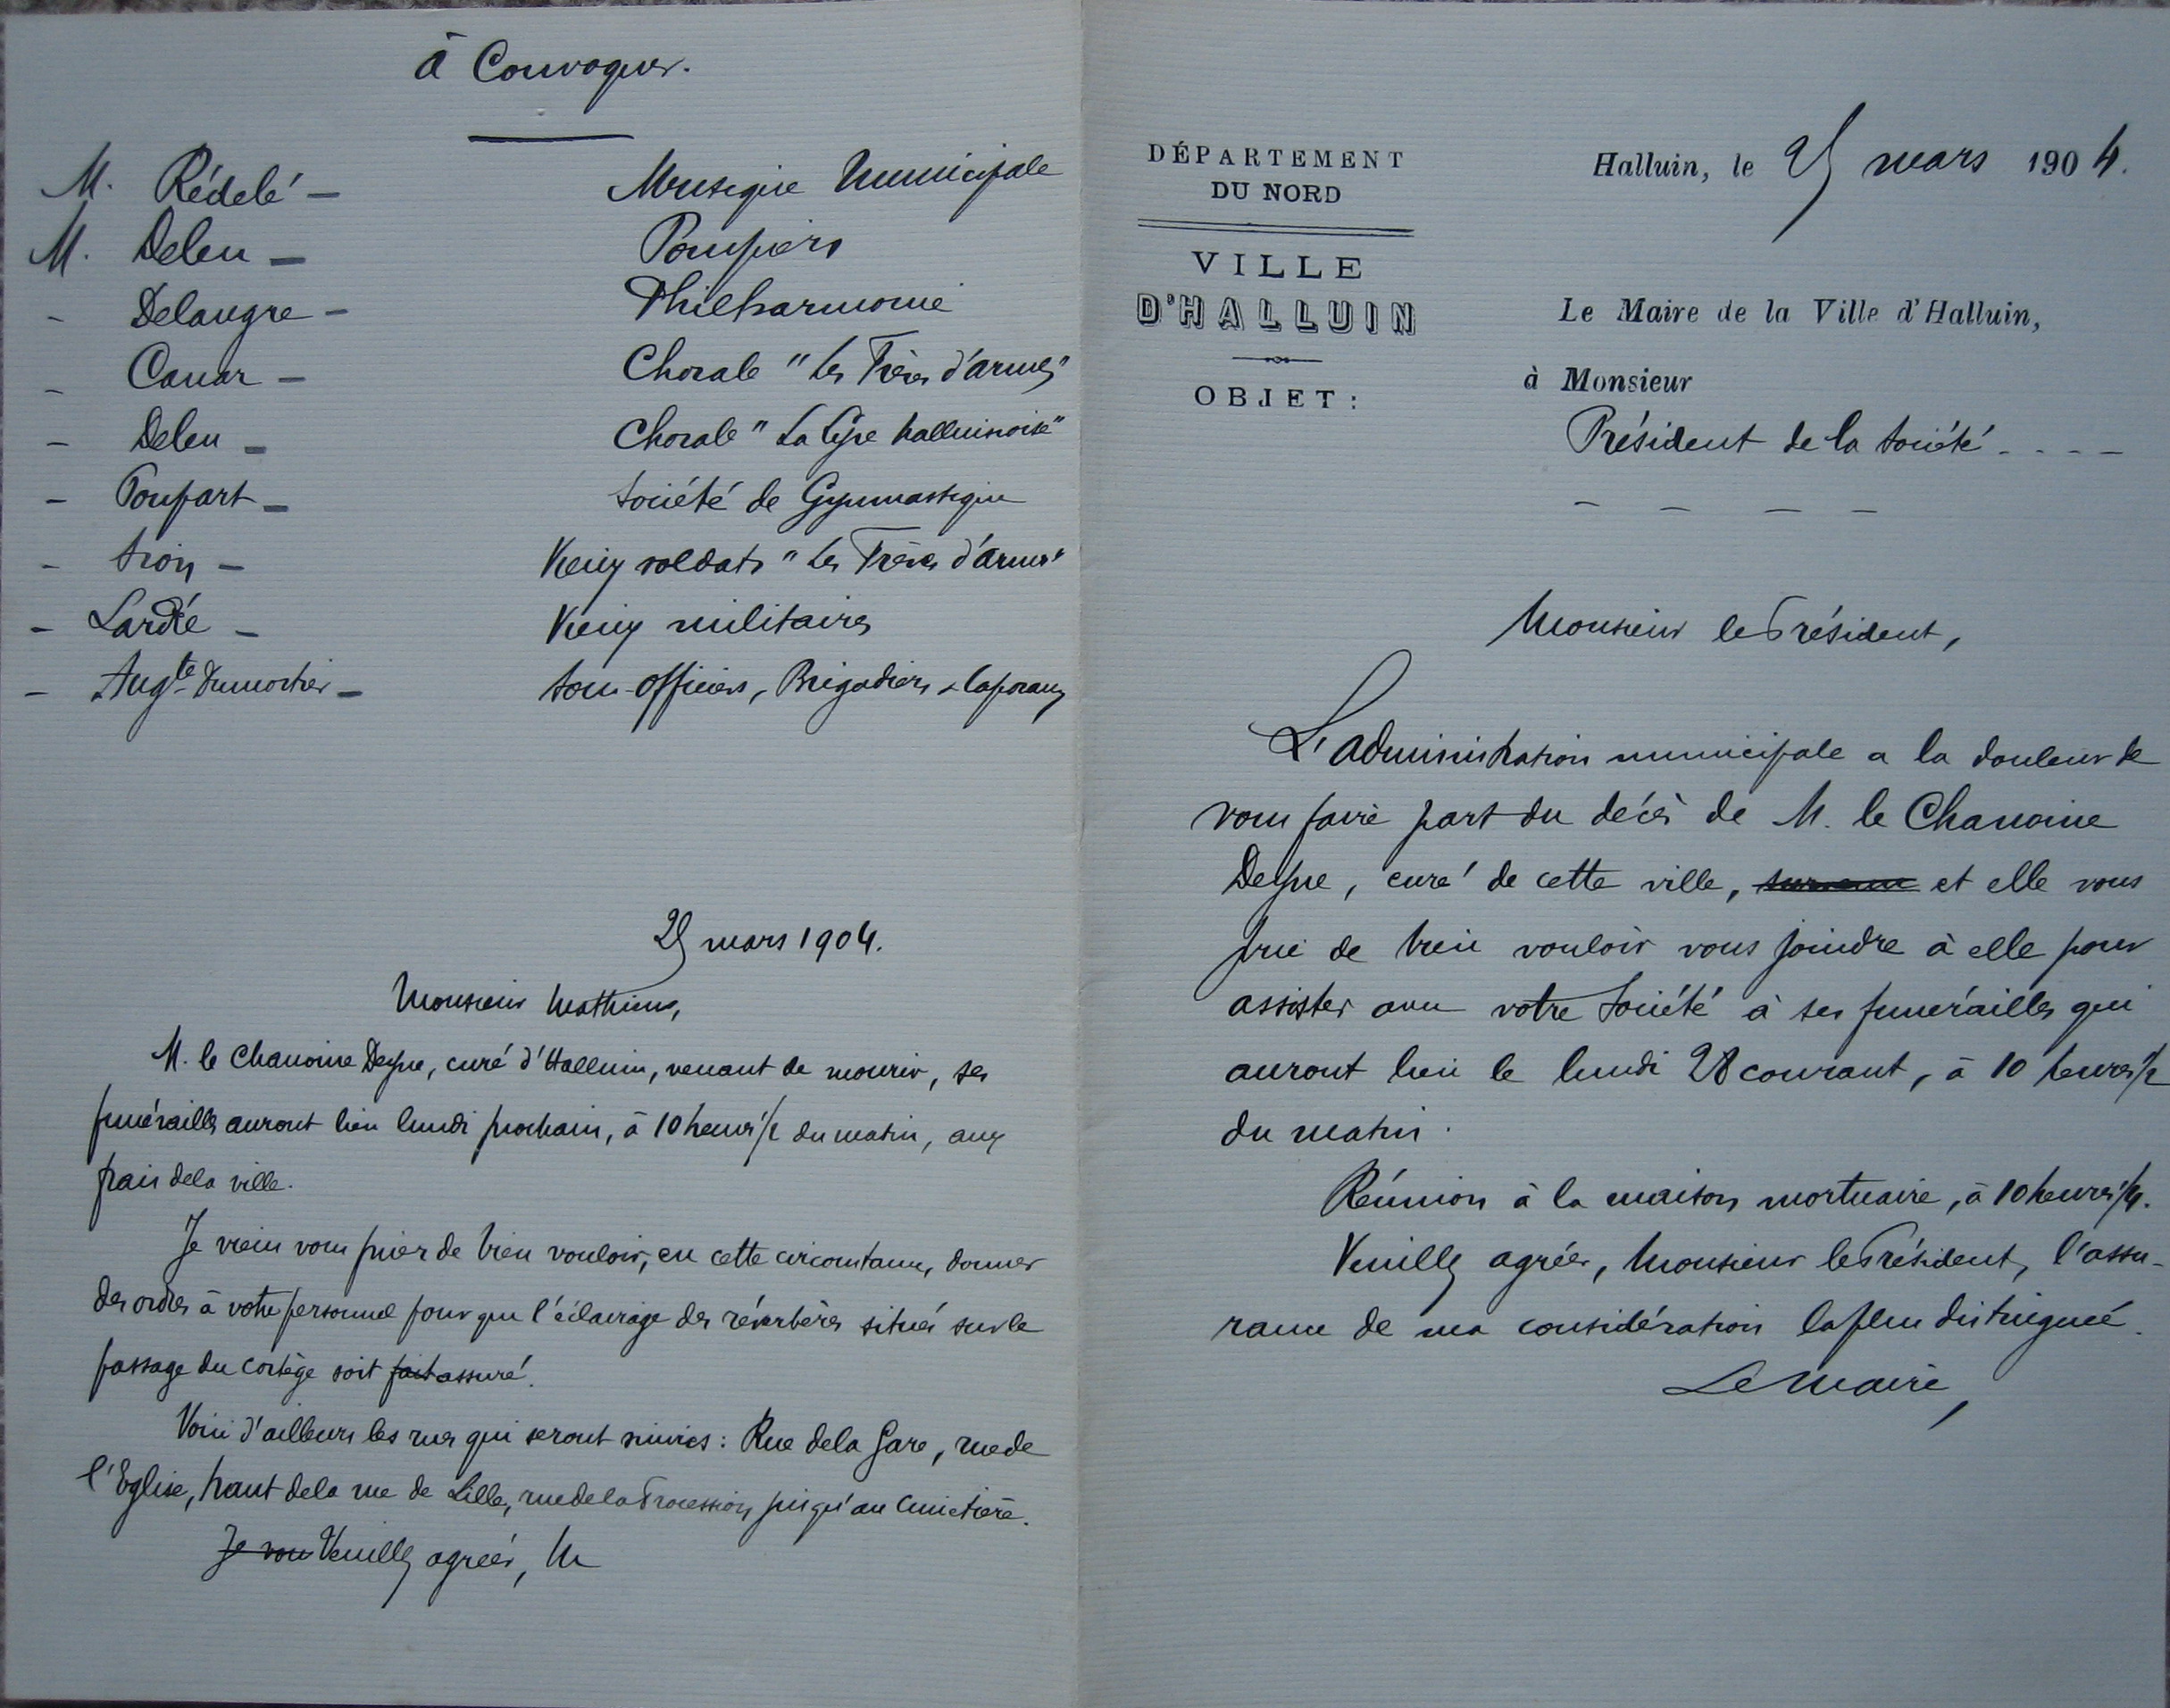 à Convoquer.
M. Rédelé — Musique Municipale
M. Deleu — Pompiers
- Delangre — Philharmonie
- Canar — Chorale "Les Frères d'armes"
- Deleu — Chorale "La Lyre halluinoise"
- Poupart — Société de Gymnastique
- Sion — Vieux soldats "Les Frères d'armes"
- Lardé — Vieux militaires
- Augte Dumortier — Sous-officiers, Brigadiers & Caporaux
25 mars 1904.
Monsieur Mathieu,
M. le Chanoine Deyne, curé d'Halluin, venant de mourir, ses
funérailles auront lieu lundi prochain, à 10 heures 1/2 du matin, aux
frais de la ville.
Je viens vous prier de bien vouloir, en cette circonstance, donner
des ordres à votre personnel pour que l'éclairage des réverbères situés sur le
passage du cortège soit fait assuré.
Voici d'ailleurs les rues qui seront suivies : Rue de la Gare, rue de
l'Eglise, haut de la rue de Lille, rue de la Procession jusqu'au Cimetière.
Je vou Veuillez agréer, M
DÉPARTEMENT
DU NORD
VILLE
D'HALLUIN
OBJET :
Halluin, le 25 mars 1904.
Le Maire de la Ville d'Halluin,
à Monsieur
Président de la Société - - - -
- - - -
Monsieur le Président,
L'administration municipale a la douleur de
vous faire part du décès de M. le Chanoine
Deyne, curé de cette ville, et elle vous
prie de bien vouloir vous joindre à elle pour
assister avec votre Société à ses funérailles qui
auront lieu le lundi 28 courant, à 10 heures 1/2
du matin.
Réunion à la maison mortuaire, à 10 heures 1/4.
Veuillez agréer, Monsieur le Président, l'assu-
rance de ma considération la plus distinguée.
Le Maire,